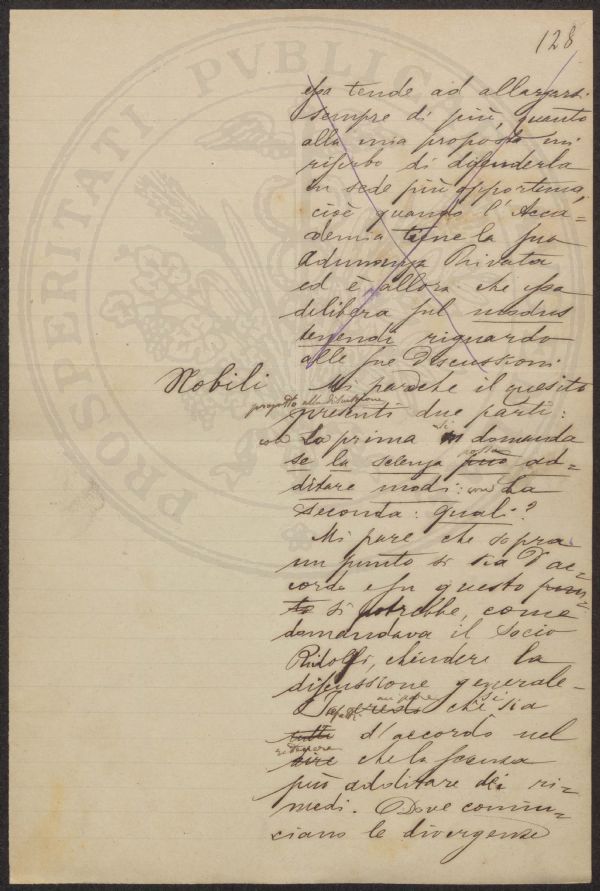 128
essa tende ad allargarsi
sempre di più, quanto
alla mia proposta, mi
riserbo di difenderla
in sede più opportuna,
cioè quando l'Acca=
demia tiene la sua
Adunanza Privata
ed è allora che essa
delibera sul modus
tenendi riguardo
alle sue Discussioni
Nobili Mi pare che il quesito
proposto alla discussione
presenti due parti:
La prima si domanda
se la scienza possa può ad=
ditare modi: La
seconda: quali?
Mi pare che sopra
un punto si sia d'ac=
cordo e su questo pun=
to si potrebbe, come
domandava il Socio
Ridolfi, chiudere la
discussione generale -
mi pare si
che sia
tutti d'accordo nel
ritenere
dire che la scienza
può additare dei ri=
medi. Dove comin=
ciano le divergenze
PROSPERITATI PVBLICAE